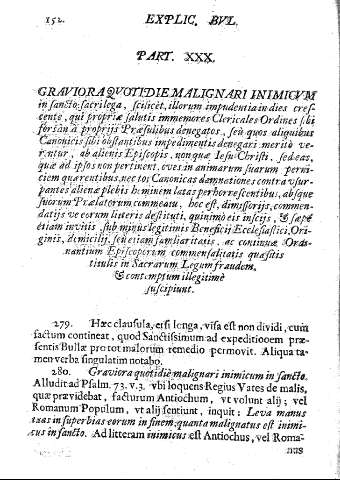 152. EXPLIC. BVL.
PART. XXX.
GRAVIORA QVOTIDIE MALIGNARI INIMICVM
in sancto: sacrilega, scilicèt, illorum impudentia in dies cres-
cente, qui propriæ salutis immemores Clericales Ordines sibi
forsàn à proprijs Præsulibus denegatos, seù quos aliquibus
Canonicis sibi obstantibus impedimentis denegari meritò ve-
rentur, ab alienis Episcopis, non quæ Iesu-Christi, sed eas,
quæ ad ipsos non pertinent, oves in animarum suarum perni-
ciem quærentibus, nec tot Canonicas damnationes contra vsur-
pantes alienæ plebis hominem latas perhorrescentibus, absque
suorum Prælatorum commeatu, hoc est, dimissorijs, commen-
datijs ve eorum litteris destituti, quinimò eis inscijs, & sæpè
etiam invitis, sub minus legitimis Beneficij Ecclesiastici, Ori-
ginis, domicilij, seù etiam familiaritatis, ac continuæ Ordi-
nantium Episcoporum commensalitatis quæsitis
titulis in Sacrarum Legum fraudem,
& contemptum illegitimè
suscipiunt.
279. Hæc clausula, etsi longa, visa est non dividi, cum
factum contineat, quod Sanctissimum ad expeditionem præ-
sentis Bullæ pro tot malorum remedio permovit. Aliqua ta-
men verba singulatim notabo.
280. Graviora quotidiè malignari inimicum in sancto.
Alludit ad Psalm. 73. v. 3. vbi loquens Regius Vates de malis,
quæ prævidebat, facturum Antiochum, vt volunt alij; vel
Romanum Populum, vt alij sentiunt, inquit: Leva manus
tuas in superbias eorum in finem: quanta malignatus est inimi-
cus in sancto. Ad litteram inimicus est Antiochus, vel Roma-
nus